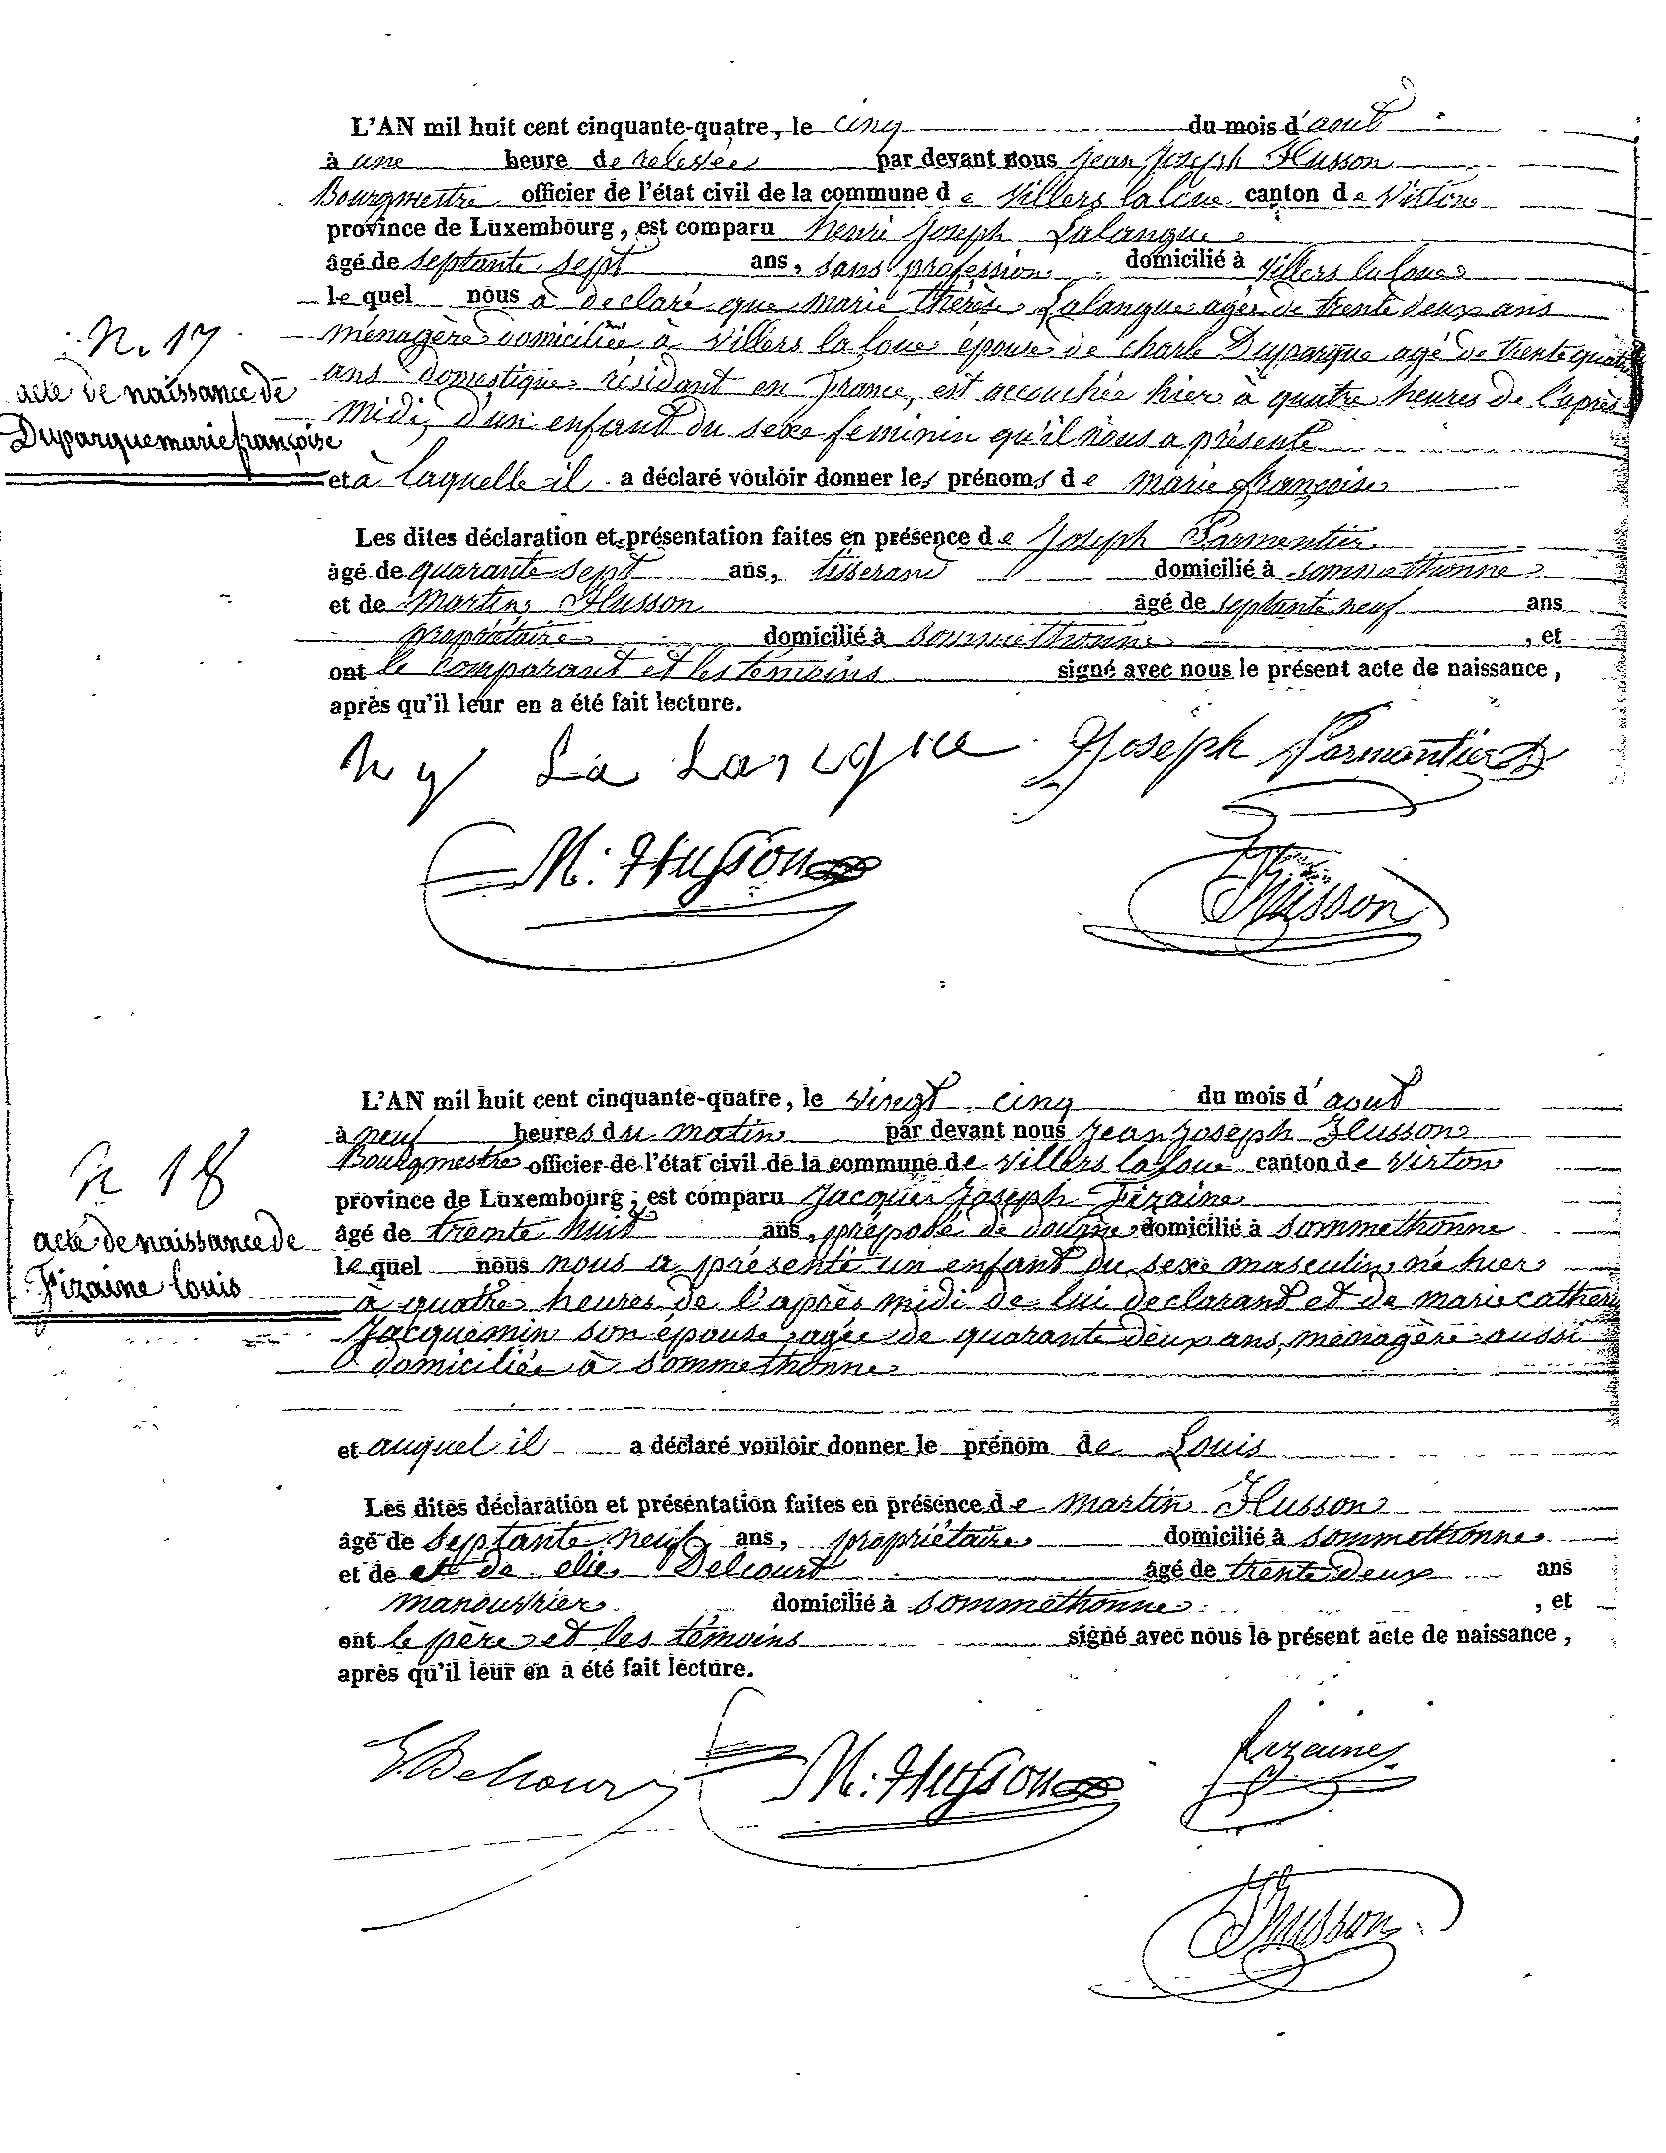 L'AN mil huit cent cinquante-quatre, le cinq du mois d'aout
à une heure de relevée par devant nous Jean Joseph Husson
Bourgmestre officier de l'état civil de la commune de Villers la loue canton de Virton
province de Luxembourg, est comparu henri Joseph Lalangue
âgé de septante sept ans, sans profession domicilié à Villers la loue
le quel nous à declaré que marie thérèse Lalangue agée de trente deux ans
ménagère domiciliée à Villers la loue épouse de charle Duparque agé de trente quatre
ans domestique résidant en france, est accouchée hier à quatre heures de l'après
midi, d'un enfant du sexe feminin qu'il nous a présenté
et à laquelle il a déclaré vouloir donner les prénoms de marie françoise
N. 17
acte de naissance de
Duparque marie françoise
Les dites déclaration et présentation faites en présence de Joseph Parmentier
âgé de quarante sept ans, tisserand domicilié à sommethonne
et de Martin Husson âgé de septante neuf ans
propriétaire domicilié à sommethonne , et
ont le comparant et les temoins signé avec nous le présent acte de naissance,
après qu'il leur en a été fait lecture.
hy La Langue Joseph Parmentier
M: Husson Husson
L'AN mil huit cent cinquante-quatre, le vingt cinq du mois d'aout
à neuf heures du matin par devant nous Jean Joseph Husson
Bourgmestre officier de l'état civil de la commune de Villers la loue canton de Virton
province de Luxembourg, est comparu Jacques Joseph Fizaine
âgé de trente huit ans, préposé de douane domicilié à sommethonne
le quel nous nous a présenté un enfant du sexe masculin né hier
à quatre heures de l'après midi de lui declarant et de marie catherine
Jacquemin son épouse agée de quarante deux ans, ménagère aussi
domiciliée à sommethonne
N 18
acte de naissance de
Fizaine louis
et auquel il a déclaré vouloir donner le prénom de Louis
Les dites déclaration et présentation faites en présence de Martin Husson
âgé de septante neuf ans, propriétaire domicilié à sommethonne
et de et de elie Delcourt âgé de trente deux ans
manouvrier domicilié à sommethonne , et
ont le père et les témoins signé avec nous le présent acte de naissance,
après qu'il leur en a été fait lecture.
E Delcour M: Husson fizaine
Husson